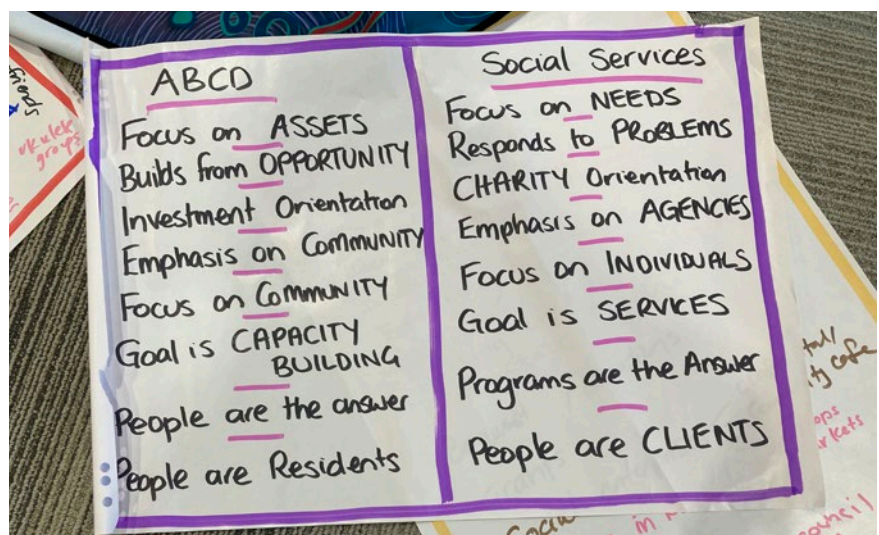 friends
ukulele
groups
ABCD
Focus on ASSETS
Builds from OPPORTUNITY
Investment Orientation
Emphasis on COMMUNITY
Focus on COMMUNITY
Goal is CAPACITY
BUILDING
People are the answer
People are Residents
Social Services
Focus on NEEDS
Responds to PROBLEMS
CHARITY Orientation
Emphasis on AGENCIES
Focus on INDIVIDUALS
Goal is SERVICES
Programs are the Answer
People are CLIENTS
cafe
Social
in
council